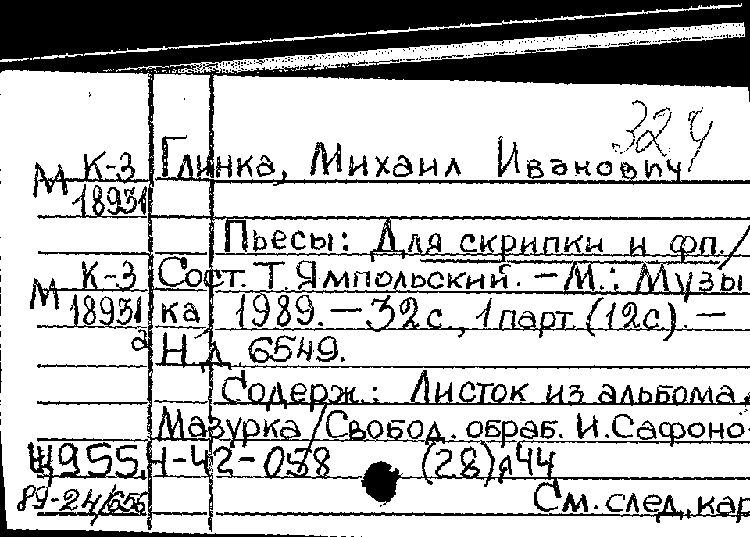 324
М К-3 Глинка, Михаил Иванович
18931
Пьесы: Для скрипки и фп./
М К-3 Сост. Т. Ямпольский. — М.: Музы
18931 ка 1989. — 32 с., 1 парт. (12с.). —
а Н.д. 6549.
Содерж.: Листок из альбома.
Мазурка /Свобод. обраб. И. Сафоно-
Щ955.4-42-058 (28)я44
89-24/656 См. след. кар